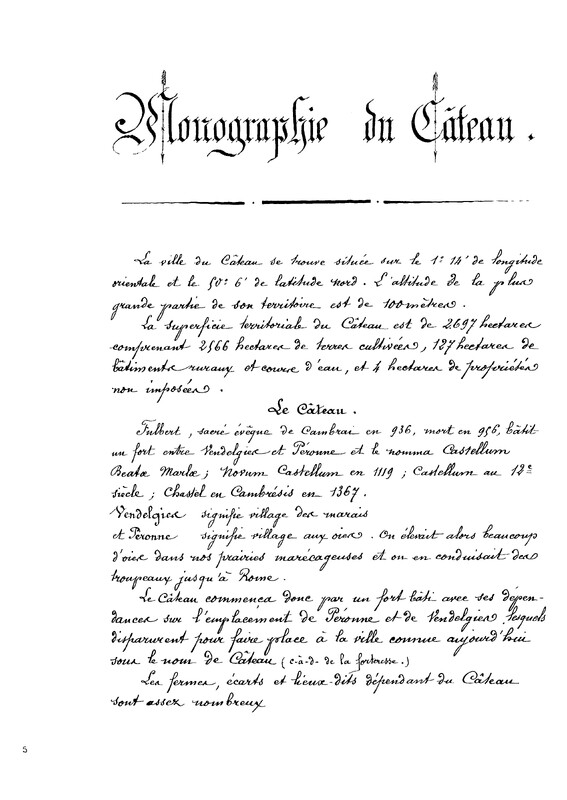 Monographie du Câteau.
La ville du Câteau se trouve située sur le 1° 14' de longitude
orientale et le 50° 6' de latitude nord. L'altitude de la plus
grande partie de son territoire est de 100 mètres.
La superficie territoriale du Câteau est de 2697 hectares
comprenant 2566 hectares de terres cultivées, 127 hectares de
bâtiments ruraux et cours d'eau, et 4 hectares de propriétés
non imposées.
Le Câteau.
Fulbert, sacré évêque de Cambrai en 936, mort en 956, bâtit
un fort entre Vendelgies et Péronne et le nomma Castellum
Beatæ Mariæ; Novum Castellum en 1119; Castellum au 12e
siècle; Chastel en Cambrésis en 1367.
Vendelgies signifie village des marais
et Péronne signifie village aux oies. On élevait alors beaucoup
d'oies dans nos prairies marécageuses et on en conduisait des
troupeaux jusqu'à Rome.
Le Câteau commença donc par un fort bâti avec ses dépen-
dances sur l'emplacement de Péronne et de Vendelgies, lesquels
disparurent pour faire place à la ville connue aujourd'hui
sous le nom de Câteau (c-à-d- de la forteresse.)
Les fermes, écarts et lieux-dits dépendant du Câteau
sont assez nombreux
5